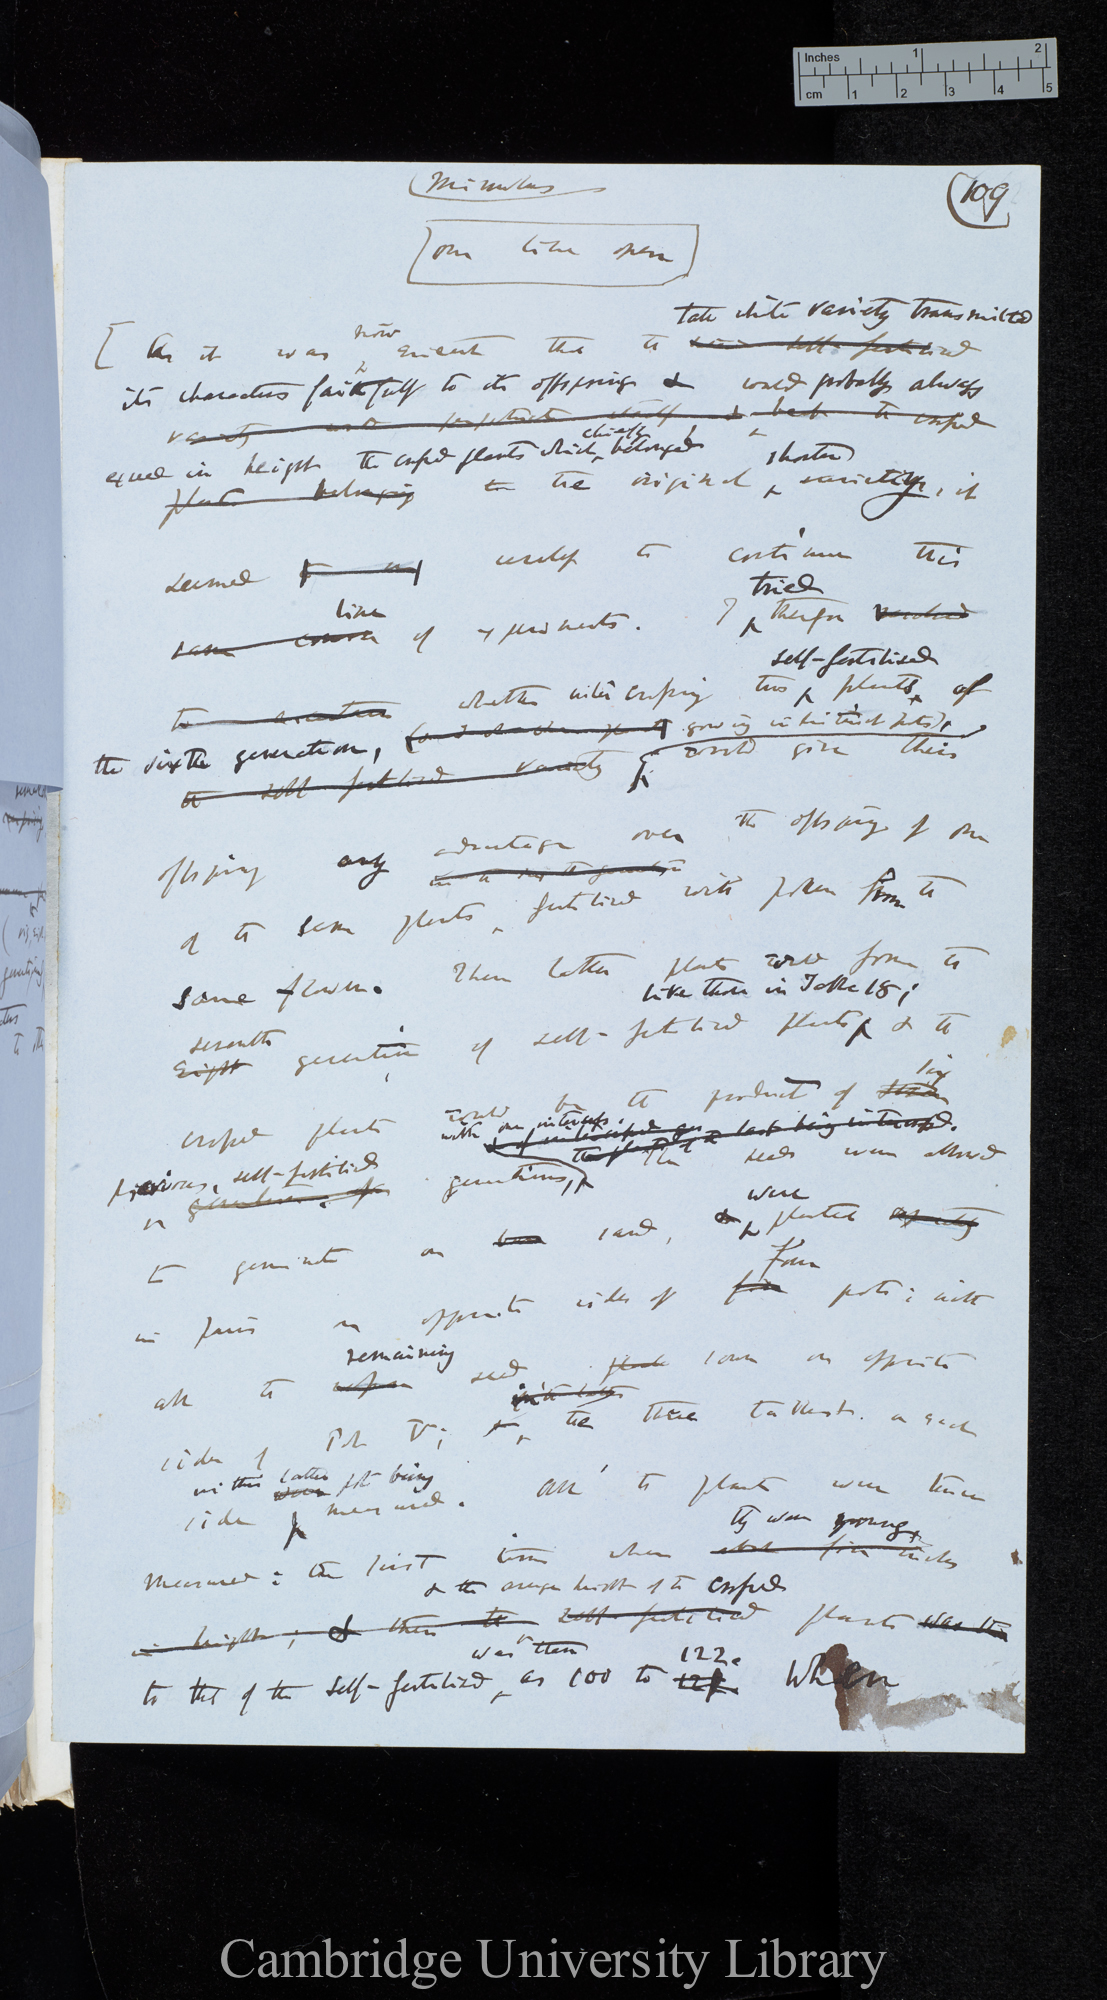 Inches 1 2
cm 1 2 3 4 5
Mimulus
109
one line open
tall white variety transmitted
[ As it was now evident that the self-fertilised
its characters faithfully to its offspring & would probably always
variety would perpetuate itself & beat the crossed
exceed in height the crossed plants which chiefly belonged
plants belonging to the original shorter varieties, it
seemed useless to continue this
line
same course of experiments. I tried therefore resolved
self-fertilised
to ascertain whether intercrossing two plants of
the sixth generation, growing in distinct pots,
the self-fertilised variety would give their
offspring any advantage over the offspring of one
of the same plants fertilised with pollen from the
same flower. These latter plants were from the
like those in Table 18;
seventh
Eight generation of self-fertilised plants & the
six
crossed plants would be the product of
with one intercross.
previous self-fertilised
generations, The seeds were allowed
were
to germinate on bare sand, & planted
four
in pairs on opposite sides of five pots; with
remaining
all the seed sown on opposite
sides of Pot V; the three tallest on each
in this latter pot being
side measured. All the plants were twice
they were young,
measured: the first time when inches
& the average height of the crossed
in height; & then the self-fertilised plants was then
was then 122.
to that of the self-fertilised as 100 to When
Cambridge University Library